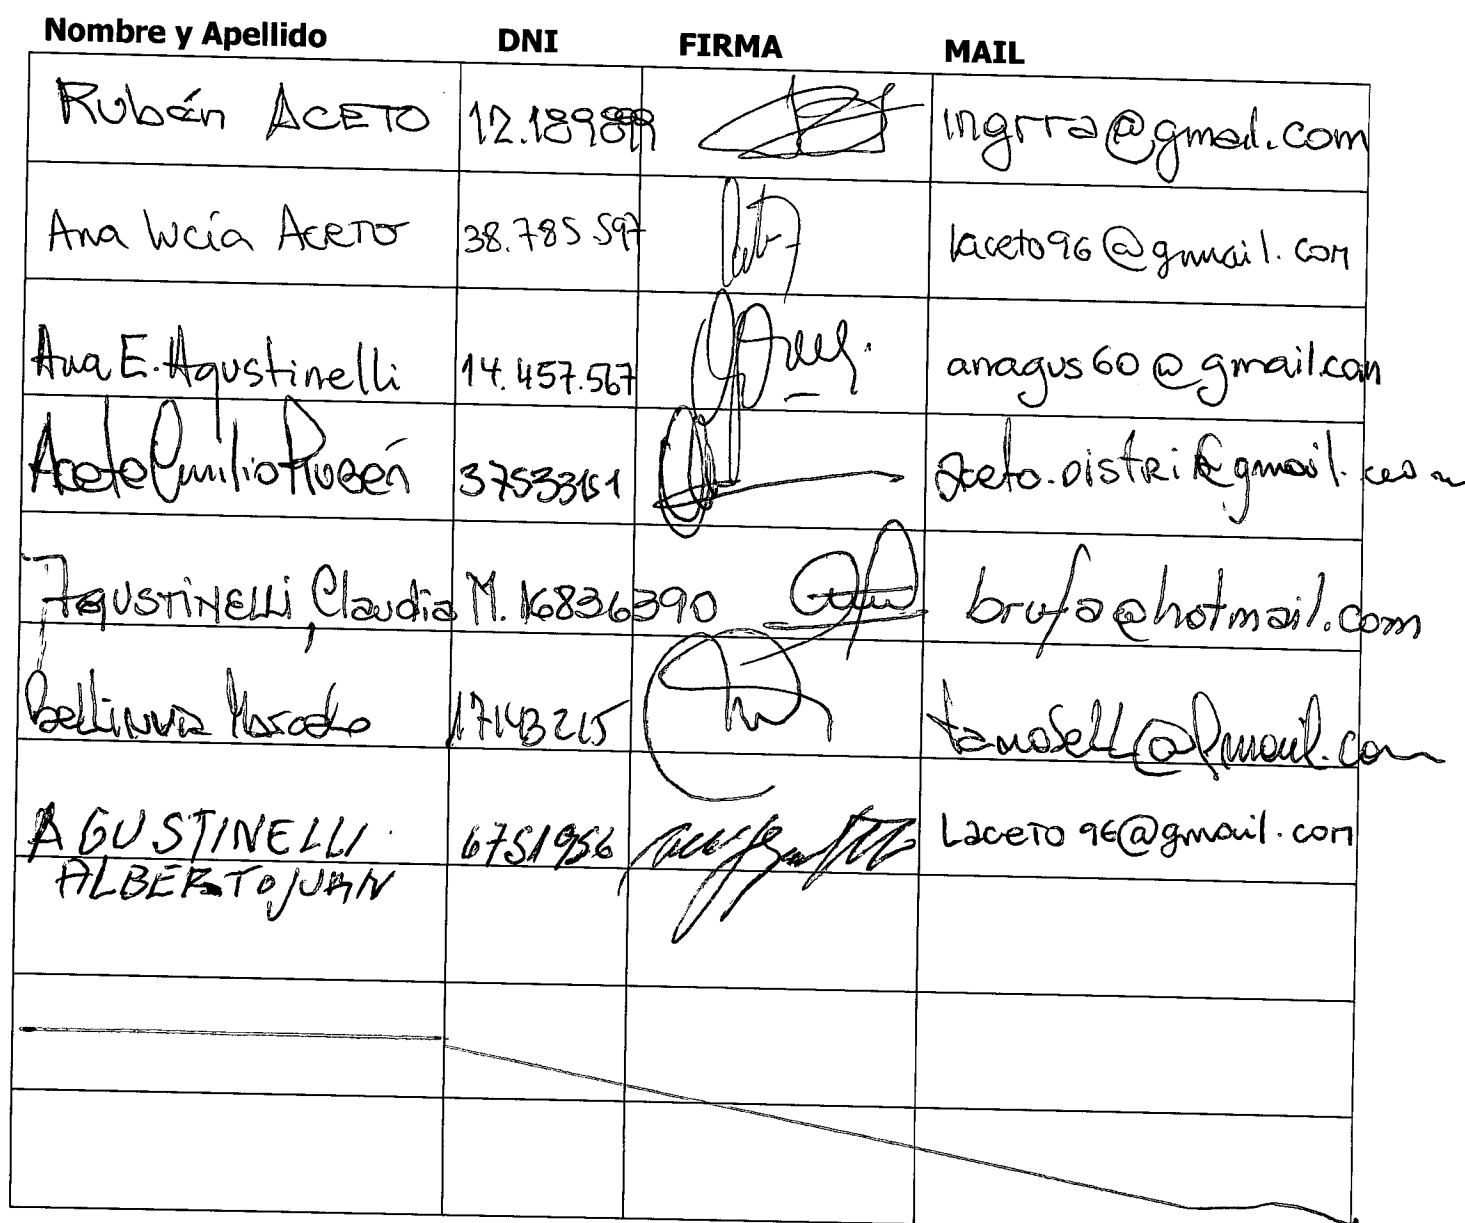 Nombre y Apellido DNI FIRMA MAIL
Rubén ACETO 12.189899 ingrra@gmail.com
Ana Lucía ACETO 38.785.597 laceto96@gmail.com
Ana E. Agustinelli 14.457.567 anagus60@gmail.com
Aceto Emilio Rubén 37533151 aceto.distri@gmail.com
AgUSTINELLi, Claudia M. 16836390 brufa@hotmail.com
17143215
AGUSTINELLI 6751956 Laceto96@gmail.com
ALBERTO JUAN